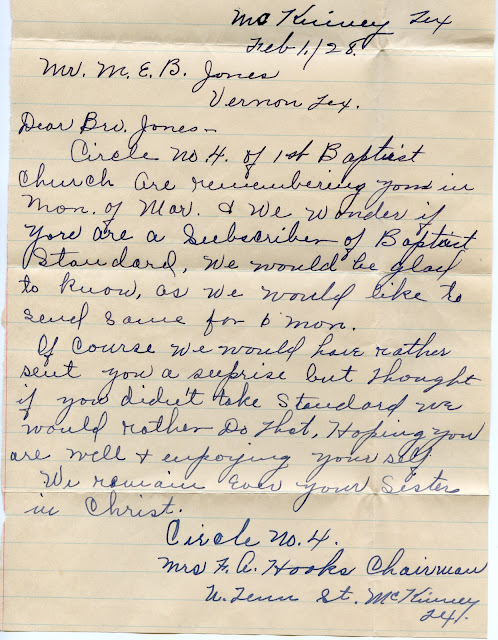 McKinney Tex
Feb 1/28.
Mr. M. E. B. Jones
Vernon Tex.
Dear Bro. Jones-
Circle No. 4. of 1st Baptist
Church are remembering you in
Mon. of Mar. & We wonder if
you are a Subscriber of Baptist
Standard, We would be glad
to know, as We would like to
send same for 6 mon.
Of Course We would have rather
sent you a suprise but thought
if you didn't take Standard We
would rather Do that, Hoping you
are well & enpoying your self
We remain Ever your Sisters
in Christ.
Circle No. 4.
Mrs F. A. Hooks Chairman
N. Tenn St. McKinney
Tex.